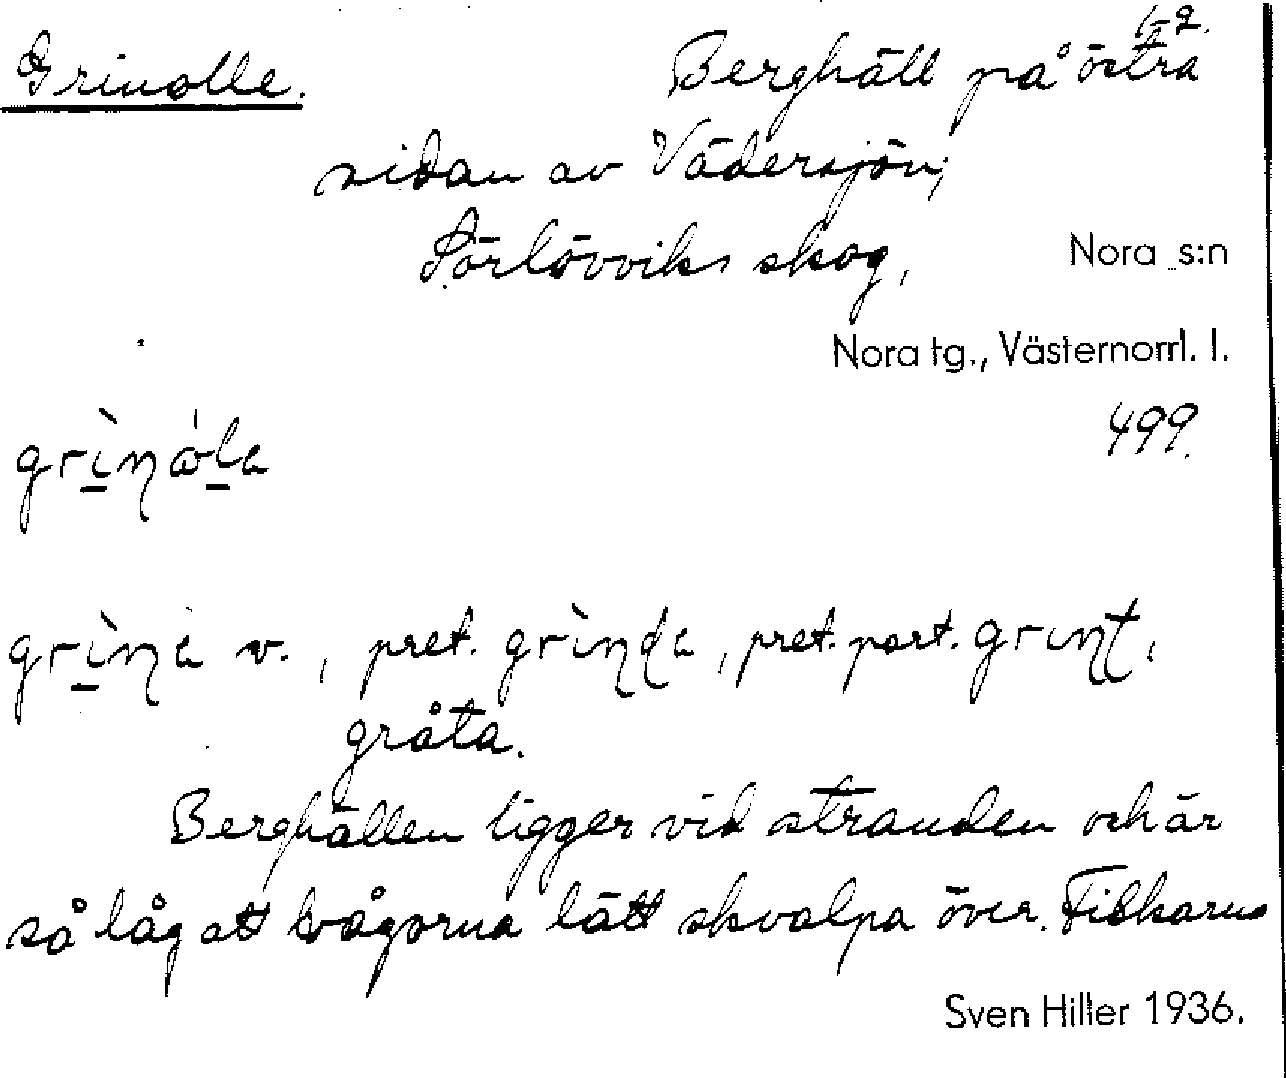 1-2.
Grinolle. Berghäll på östra
sidan av Vädersjön,
Sörlövviks skog, Nora s:n
Nora tg., Västernorrl. l.
499.
grìṇɷ́la
grìṇa v., pret. grìṇḍa, pret. part. grɩṇṭ,
gråta.
Berghällen ligger vid stranden och är
så låg att vågorna lätt skvalpa över. Fiskarna
Sven Hiller 1936.